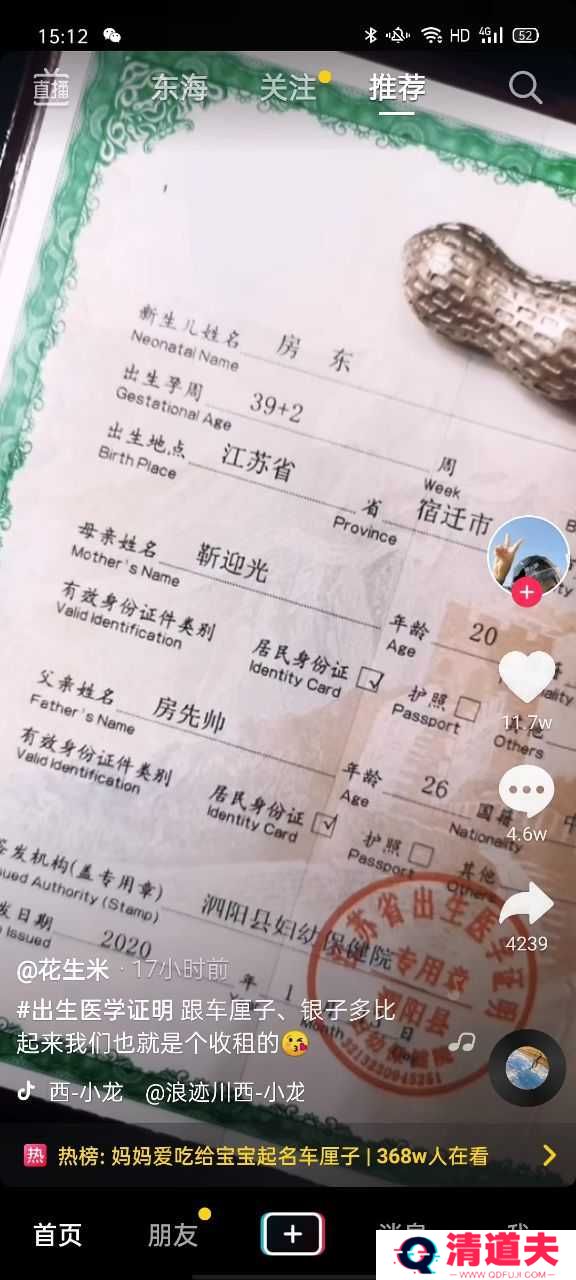 15:12
HD 4G 52
直播 东海 关注 推荐
新生儿姓名 房 东
Neonatal Name
出生孕周 39+2 周
Gestational Age Week
出生地点 江苏省 省 宿迁市
Birth Place Province
母亲姓名 靳迎光 年龄 20
Mother's Name Age
有效身份证件类别 居民身份证 护照
Valid Identification Identity Card Passport Others
11.7w
父亲姓名 房先帅 年龄 26 国籍 中
Father's Name Age Nationality
4.6w
有效身份证件类别 居民身份证 护照 其他
Valid Identification Identity Card Passport Others
签发机构(盖专用章) 泗阳县妇幼保健院
Issued Authority (Stamp)
苏省出生医学证明
专用章
泗阳县
4239
发日期 2020 年 1
Issued
@花生米 · 17小时前
#出生医学证明 跟车厘子、银子多比
起来我们也就是个收租的😘
西-小龙 @浪迹川西-小龙
热 热榜: 妈妈爱吃给宝宝起名车厘子 | 368w人在看
首页 朋友 消息 我
清道夫
WWW.QDFUJI.COM